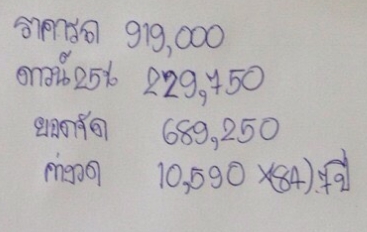 ราคารถ 919,000
ดาวน์ 25% 229,750
ยอดจัด 689,250
ค่างวด 10,590 x(84).7ปี